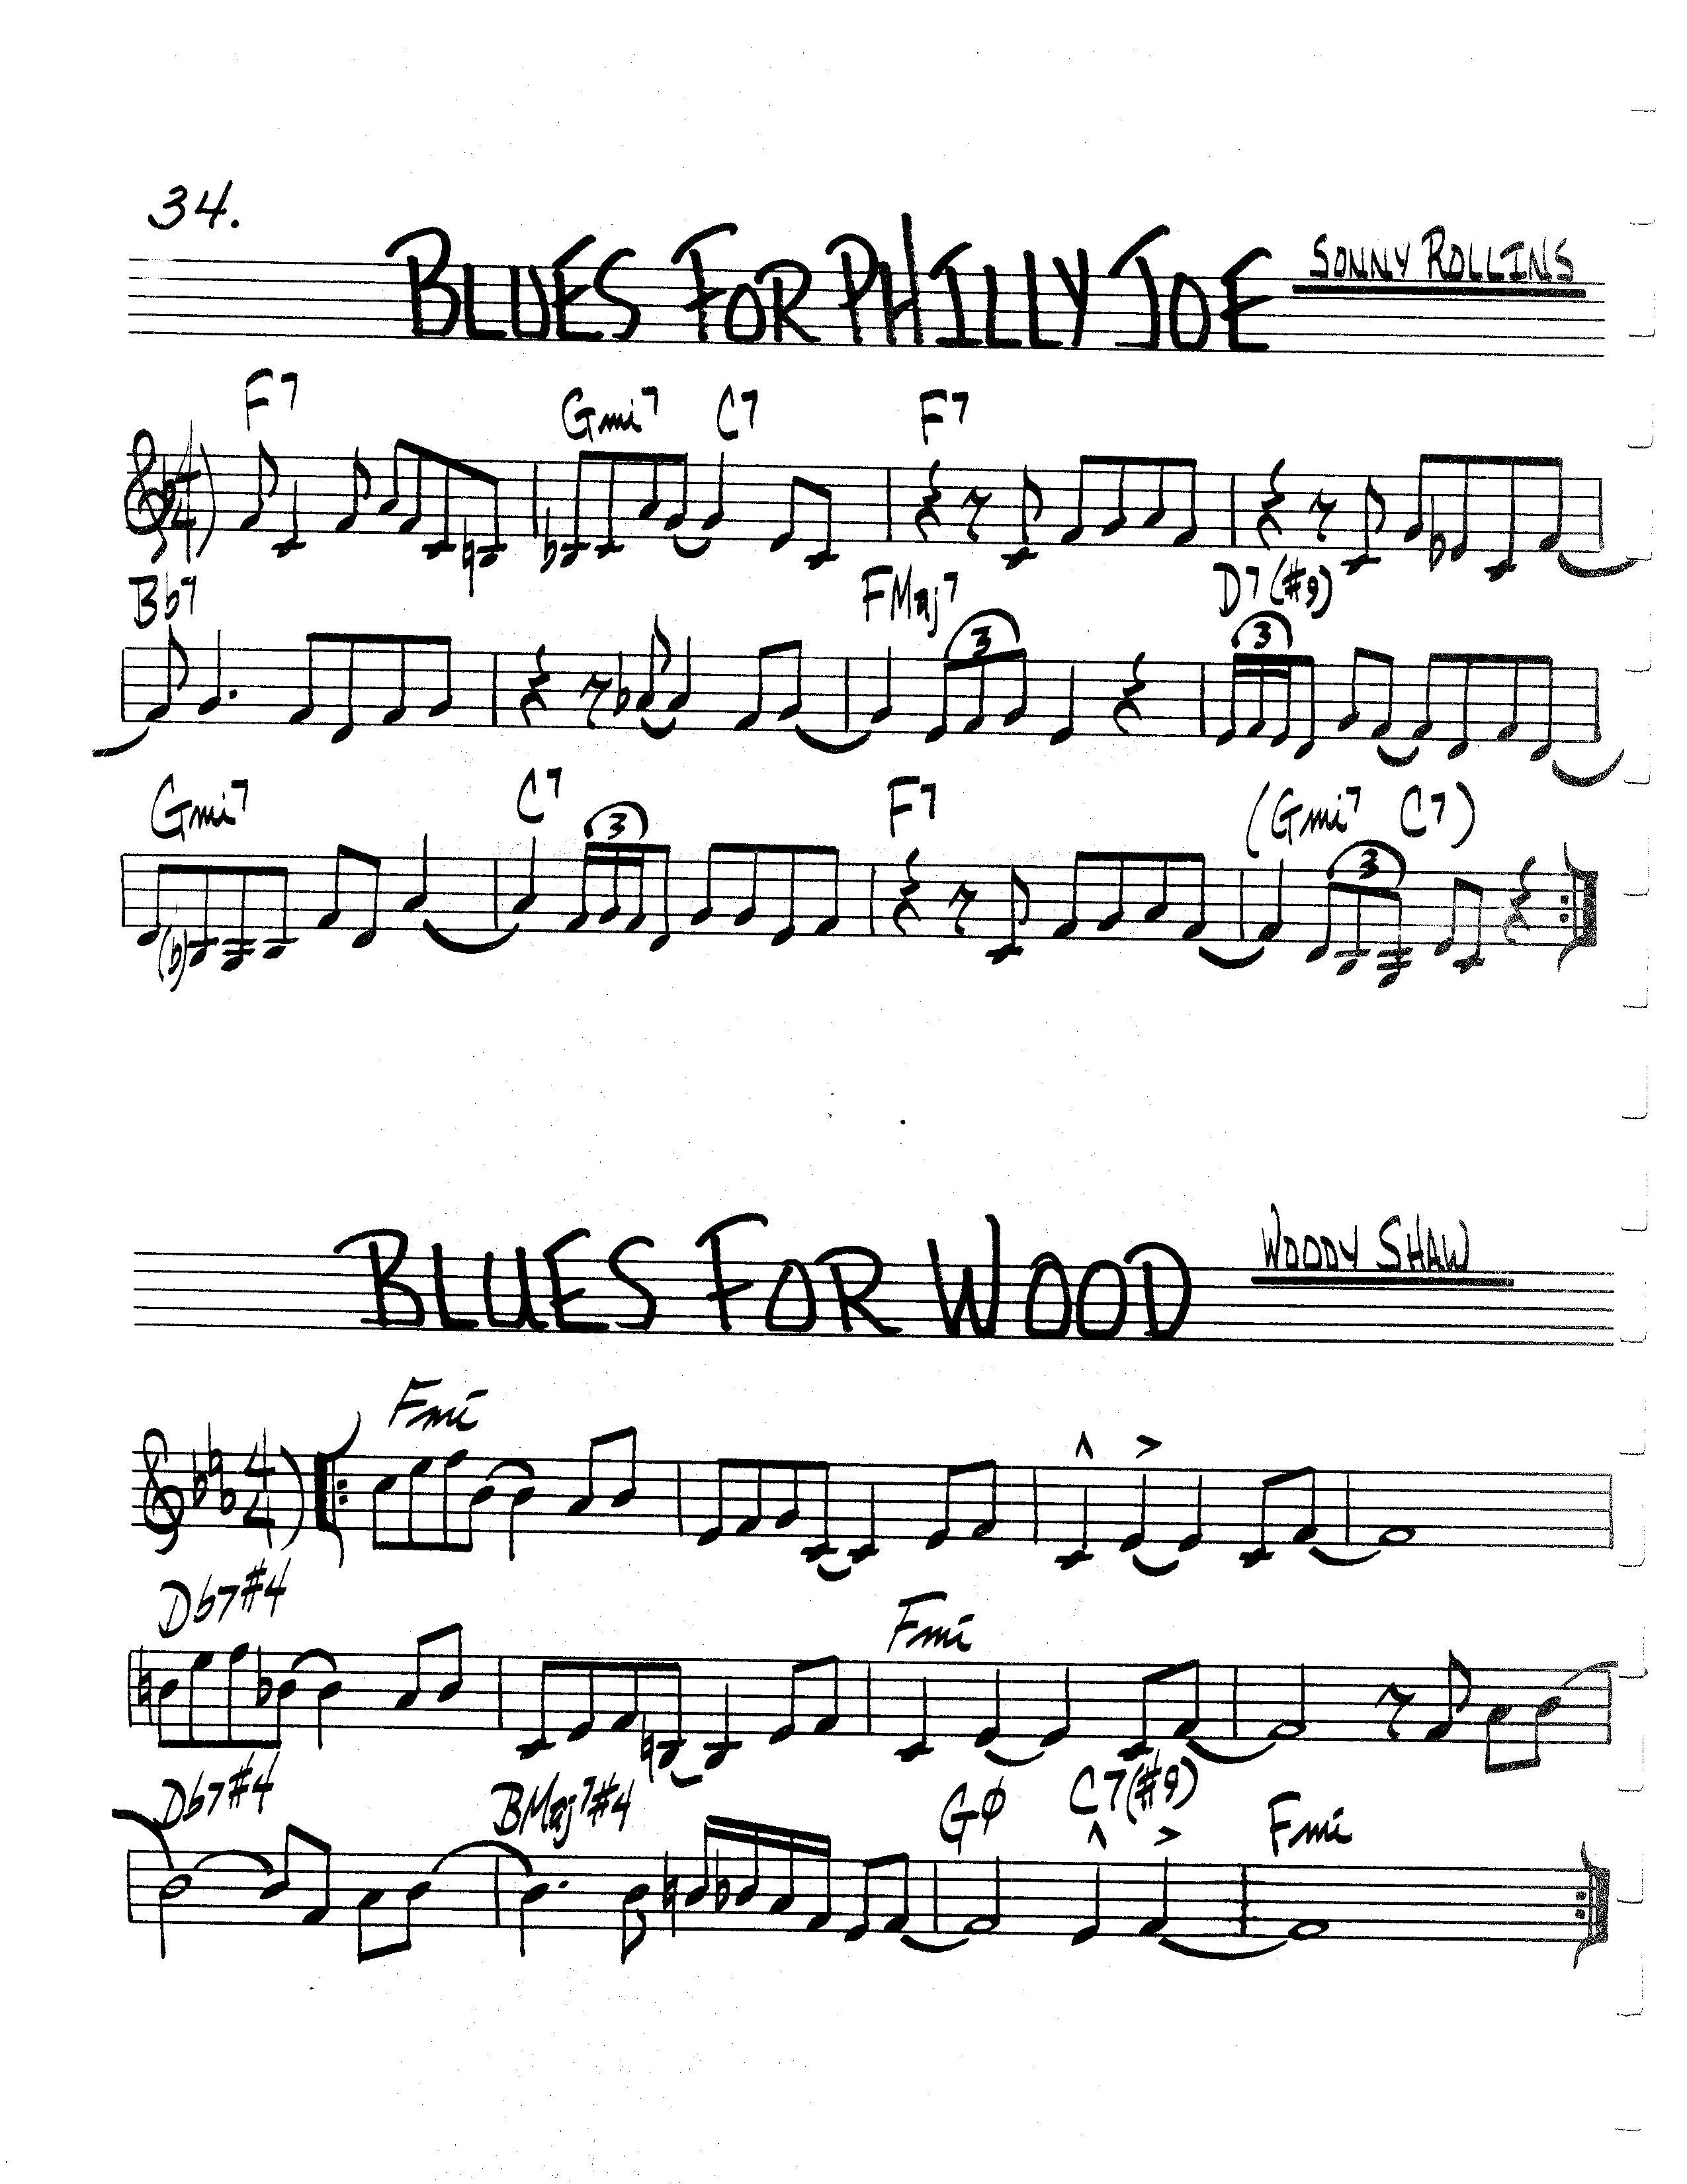 34.
BLUES FOR PHILLY JOE SONNY ROLLINS
F7 Gmi7 C7 F7
4
4
Bb7 FMaj7 D7(#9)
3 3
Gmi7 C7 F7 (Gmi7 C7)
3 3
BLUES FOR WOOD WOODY SHAW
Fmi
4
4
Db7#4 Fmi
Db7#4 BMaj7#4 Gø C7(#9) Fmi